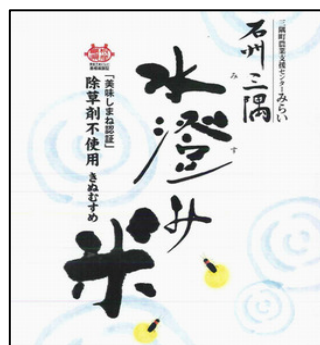 三隅町農業支援センターみらい
石州三隅
水澄み米
みす
「美味しまね認証」
除草剤不使用 きぬむすめ